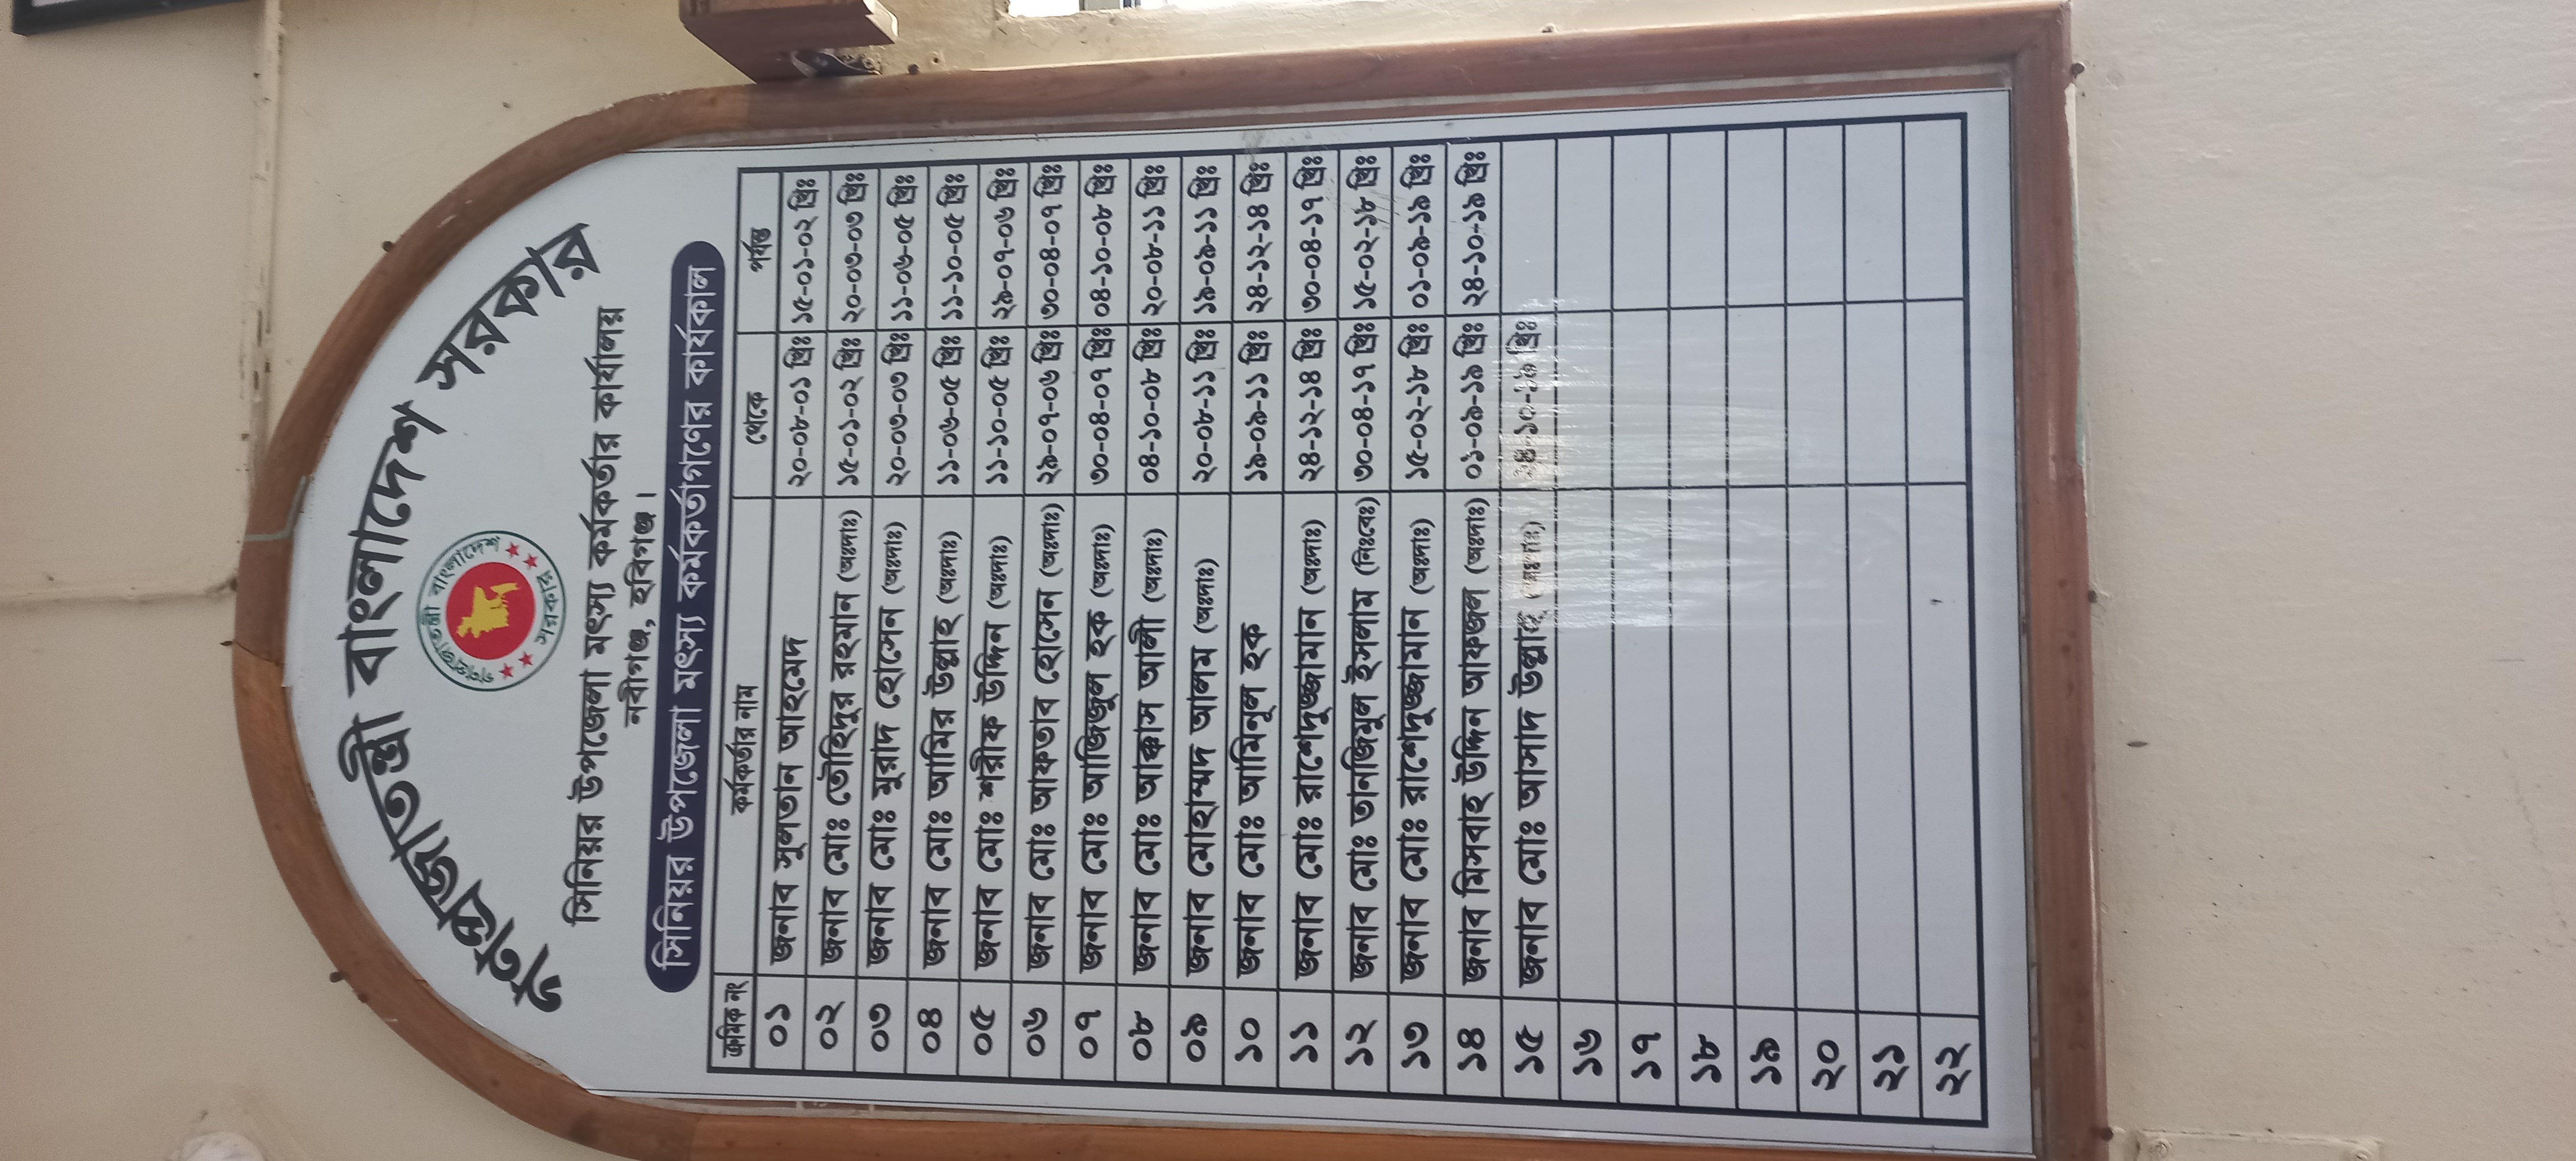 গণপ্রজাতন্ত্রী বাংলাদেশ সরকার
গণপ্রজাতন্ত্রী বাংলাদেশ
সরকার
সিনিয়র উপজেলা মৎস্য কর্মকর্তার কার্যালয়
নবীগঞ্জ, হবিগঞ্জ।
সিনিয়র উপজেলা মৎস্য কর্মকর্তাগণের কার্যকাল
ক্রমিক নং কর্মকর্তার নাম থেকে পর্যন্ত
০১ জনাব সুলতান আহমেদ ২০-০৮-০১ খ্রিঃ ১৫-০১-০২ খ্রিঃ
০২ জনাব মোঃ তৌহিদুর রহমান (অঃদাঃ) ১৫-০১-০২ খ্রিঃ ২০-০৩-০৩ খ্রিঃ
০৩ জনাব মোঃ মুরাদ হোসেন (অঃদাঃ) ২০-০৩-০৩ খ্রিঃ ১১-০৬-০৫ খ্রিঃ
০৪ জনাব মোঃ আমির উল্লাহ (অঃদাঃ) ১১-০৬-০৫ খ্রিঃ ১১-১০-০৫ খ্রিঃ
০৫ জনাব মোঃ শরীফ উদ্দিন (অঃদাঃ) ১১-১০-০৫ খ্রিঃ ২৯-০৭-০৬ খ্রিঃ
০৬ জনাব মোঃ আফতাব হোসেন (অঃদাঃ) ২৯-০৭-০৬ খ্রিঃ ৩০-০৪-০৭ খ্রিঃ
০৭ জনাব মোঃ আজিজুল হক (অঃদাঃ) ৩০-০৪-০৭ খ্রিঃ ০৪-১০-০৮ খ্রিঃ
০৮ জনাব মোঃ আক্কাস আলী (অঃদাঃ) ০৪-১০-০৮ খ্রিঃ ২০-০৮-১১ খ্রিঃ
০৯ জনাব মোহাম্মদ আলম (অঃদাঃ) ২০-০৮-১১ খ্রিঃ ১৯-০৯-১১ খ্রিঃ
১০ জনাব মোঃ আমিনুল হক ১৯-০৯-১১ খ্রিঃ ২৪-১২-১৪ খ্রিঃ
১১ জনাব মোঃ রাশেদুজ্জামান (অঃদাঃ) ২৪-১২-১৪ খ্রিঃ ৩০-০৪-১৭ খ্রিঃ
১২ জনাব মোঃ তানজিমুল ইসলাম (নিঃবেঃ) ৩০-০৪-১৭ খ্রিঃ ১৫-০২-১৮ খ্রিঃ
১৩ জনাব মোঃ রাশেদুজ্জামান (অঃদাঃ) ১৫-০২-১৮ খ্রিঃ ০১-০৯-১৯ খ্রিঃ
১৪ জনাব মিসবাহ উদ্দিন আফজল (অঃদাঃ) ০১-০৯-১৯ খ্রিঃ ২৪-১০-১৯ খ্রিঃ
১৫ জনাব মোঃ আসাদ উল্লাহ (অঃদাঃ) ২৪-১০-১৯ খ্রিঃ
১৬
১৭
১৮
১৯
২০
২১
২২